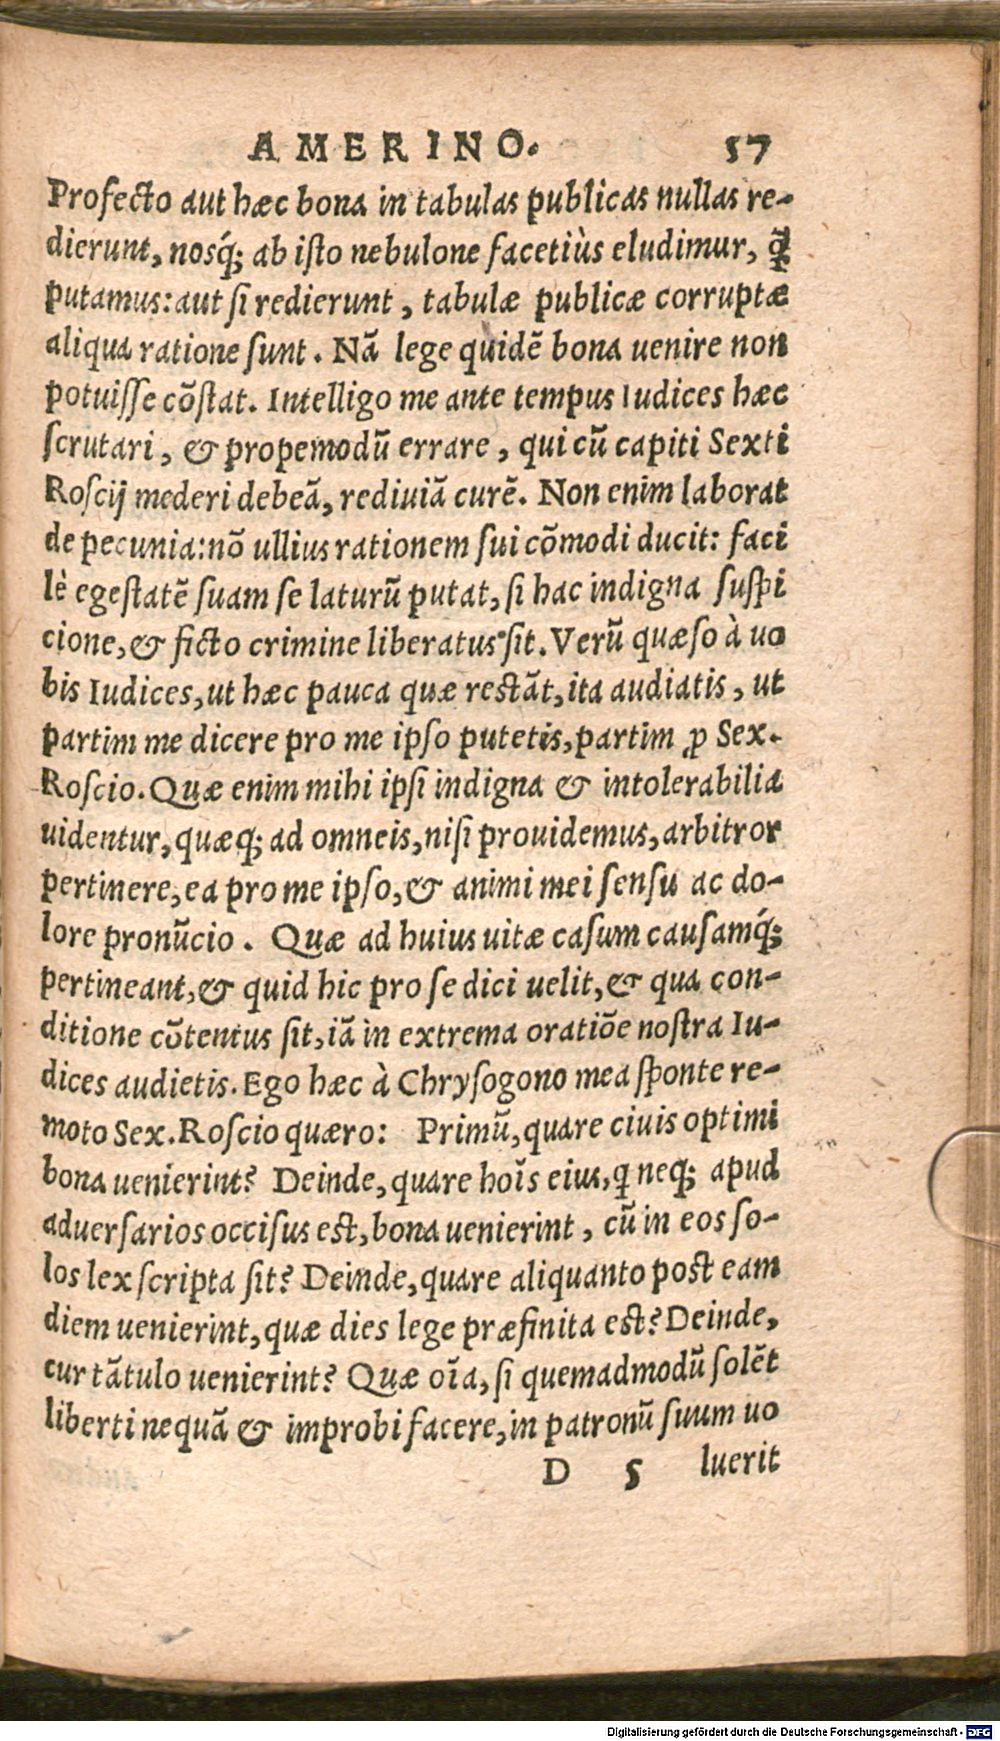 AMERINO. 57
Profecto aut hæc bona in tabulas publicas nullas re-
dierunt, nosq́; ab isto nebulone facetiùs eludimur, q̃
putamus: aut si redierunt, tabulæ publicæ corruptæ
aliqua ratione sunt. Nã lege quidẽ bona uenire non
potuisse cõstat. Intelligo me ante tempus Iudices hæc
scrutari, & propemodũ errare, qui cũ capiti Sexti
Roscij mederi debeã, rediuiã curẽ. Non enim laborat
de pecunia: nõ ullius rationem sui cõmodi ducit: faci
lè egestatẽ suam se laturũ putat, si hac indigna suspi
cione, & ficto crimine liberatus sit. Verũ quæso à uo
bis Iudices, ut hæc pauca quæ restãt, ita audiatis, ut
partim me dicere pro me ipso putetis, partim ꝓ Sex.
Roscio. Quæ enim mihi ipsi indigna & intolerabilia
uidentur, quæq; ad omneis, nisi prouidemus, arbitror
pertinere, ea pro me ipso, & animi mei sensu ac do-
lore pronũcio. Quæ ad huius uitæ casum causamq́;
pertineant, & quid hic pro se dici uelit, & qua con-
ditione cõtentus sit, iã in extrema oratiõe nostra Iu-
dices audietis. Ego hæc à Chrysogono mea sponte re-
moto Sex. Roscio quæro: Primũ, quare ciuis optimi
bona uenierint? Deinde, quare hoĩs eius, q̃ neq; apud
aduersarios occisus est, bona uenierint, cũ in eos so-
los lex scripta sit? Deinde, quare aliquanto post eam
diem uenierint, quæ dies lege præfinita est? Deinde,
cur tãtulo uenierint? Quæ oĩa, si quemadmodũ solẽt
liberti nequã & improbi facere, in patronũ suum uo
D 5 luerit
Digitalisierung gefördert durch die Deutsche Forschungsgemeinschaft - DFG